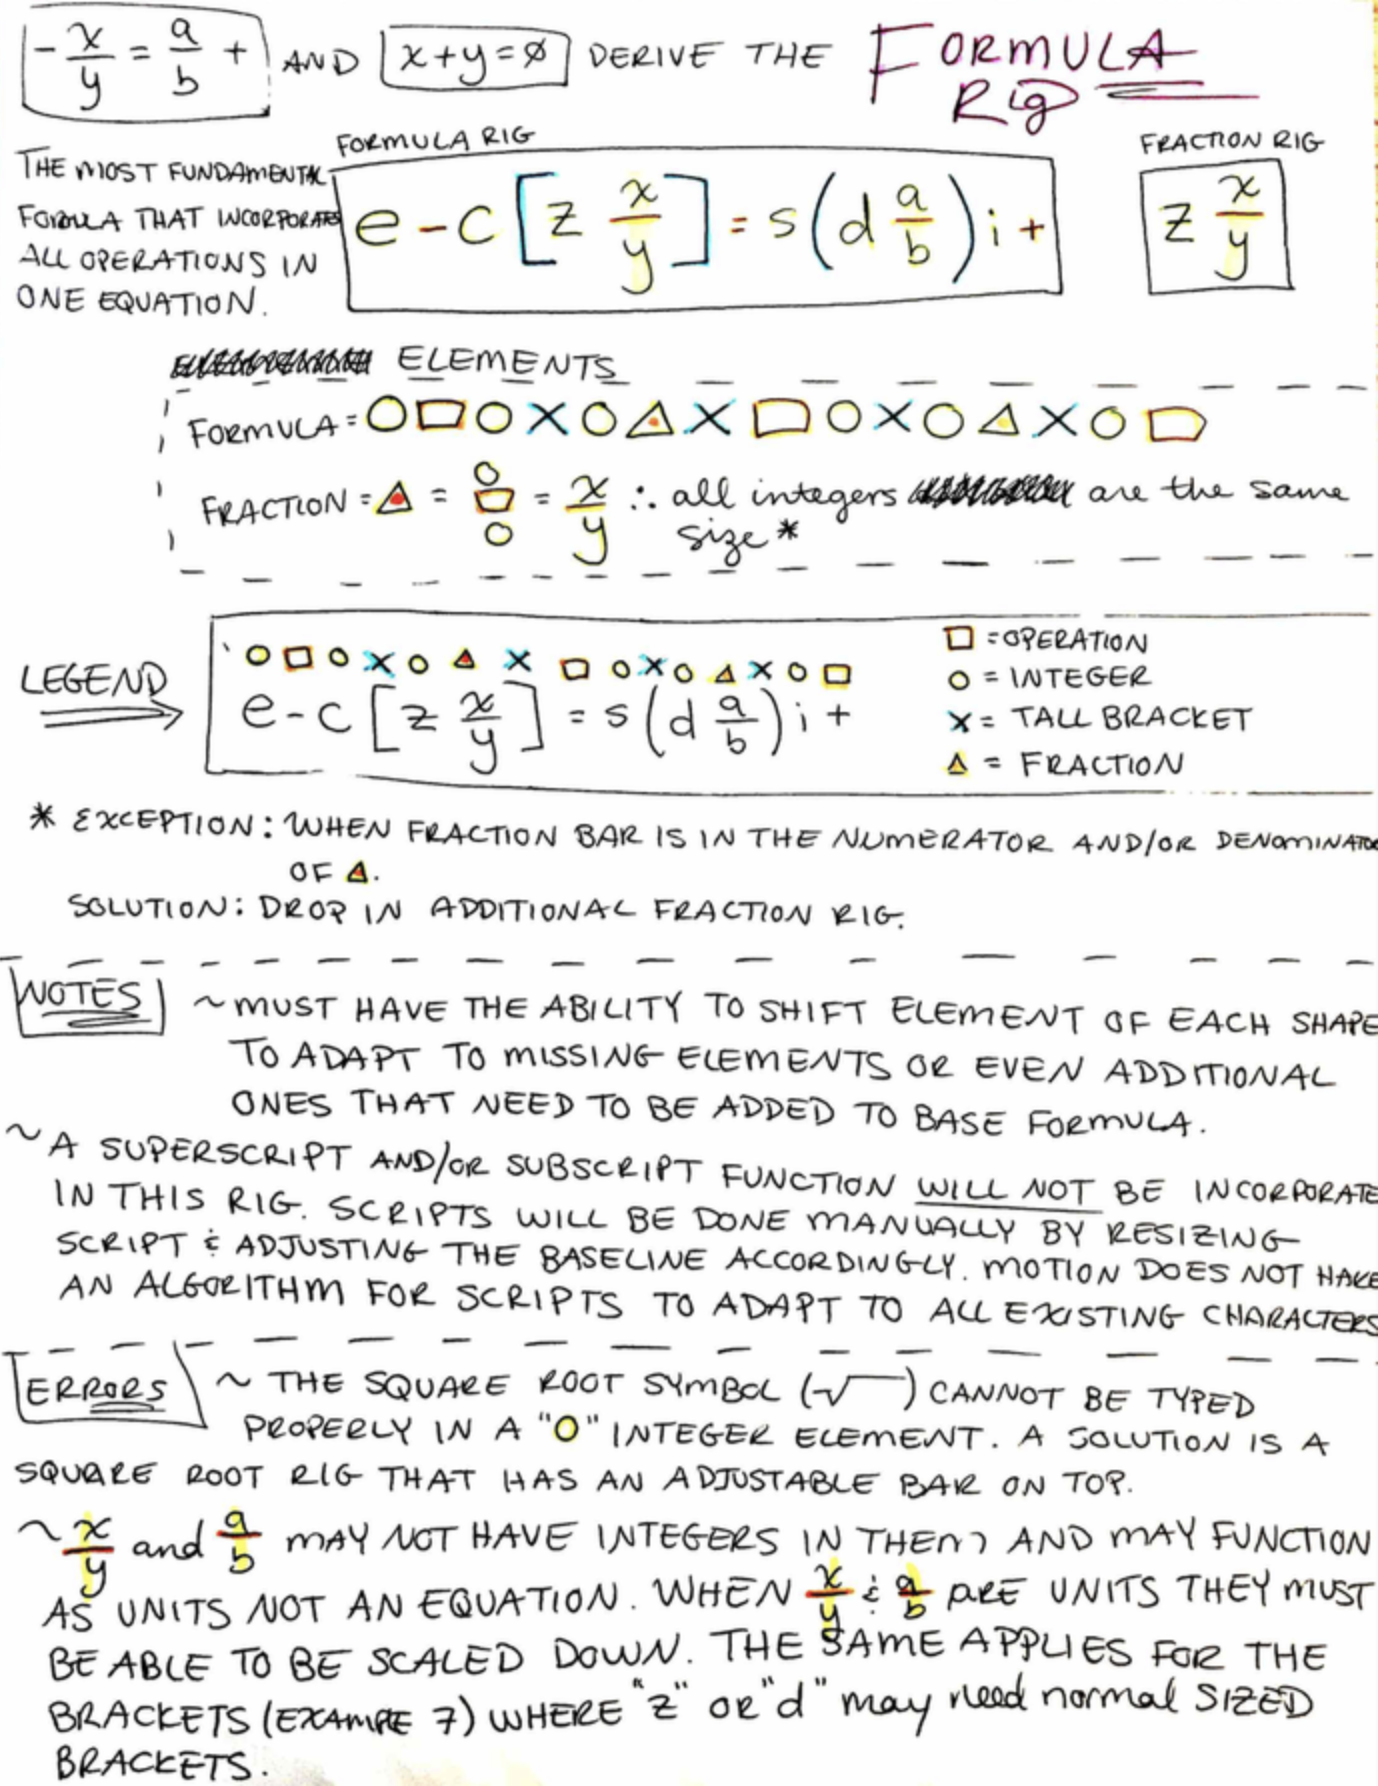 -x/y = a/b + AND x+y=∅ DERIVE THE FORMULA RIG
FORMULA RIG
FRACTION RIG
THE MOST FUNDAMENTAL
FORMULA THAT INCORPORATES
ALL OPERATIONS IN
ONE EQUATION.
e-c[z x/y]=s(d a/b)i+
z x/y
ELEMENTS
FORMULA = ○□○×○△×□○×○△×○□
FRACTION = △ = ○□○ = x/y ∴ all integers are the same
size *
LEGEND
○□○×○△×□○×○△×○□
e-c[z x/y]=s(d a/b)i+
□ = OPERATION
○ = INTEGER
× = TALL BRACKET
△ = FRACTION
* EXCEPTION: WHEN FRACTION BAR IS IN THE NUMERATOR AND/OR DENOMINATOR
OF △.
SOLUTION: DROP IN ADDITIONAL FRACTION RIG.
NOTES ~ MUST HAVE THE ABILITY TO SHIFT ELEMENT OF EACH SHAPE
TO ADAPT TO MISSING ELEMENTS OR EVEN ADDITIONAL
ONES THAT NEED TO BE ADDED TO BASE FORMULA.
~ A SUPERSCRIPT AND/OR SUBSCRIPT FUNCTION WILL NOT BE INCORPORATE
IN THIS RIG. SCRIPTS WILL BE DONE MANUALLY BY RESIZING
SCRIPT & ADJUSTING THE BASELINE ACCORDINGLY. MOTION DOES NOT HAVE
AN ALGORITHM FOR SCRIPTS TO ADAPT TO ALL EXISTING CHARACTERS
ERRORS ~ THE SQUARE ROOT SYMBOL (√‾) CANNOT BE TYPED
PROPERLY IN A "O" INTEGER ELEMENT. A SOLUTION IS A
SQUARE ROOT RIG THAT HAS AN ADJUSTABLE BAR ON TOP.
~ x/y and a/b MAY NOT HAVE INTEGERS IN THEM AND MAY FUNCTION
AS UNITS NOT AN EQUATION. WHEN x/y & a/b ARE UNITS THEY MUST
BE ABLE TO BE SCALED DOWN. THE SAME APPLIES FOR THE
BRACKETS (EXAMPE 7) WHERE "z" OR "d" may need normal SIZED
BRACKETS.